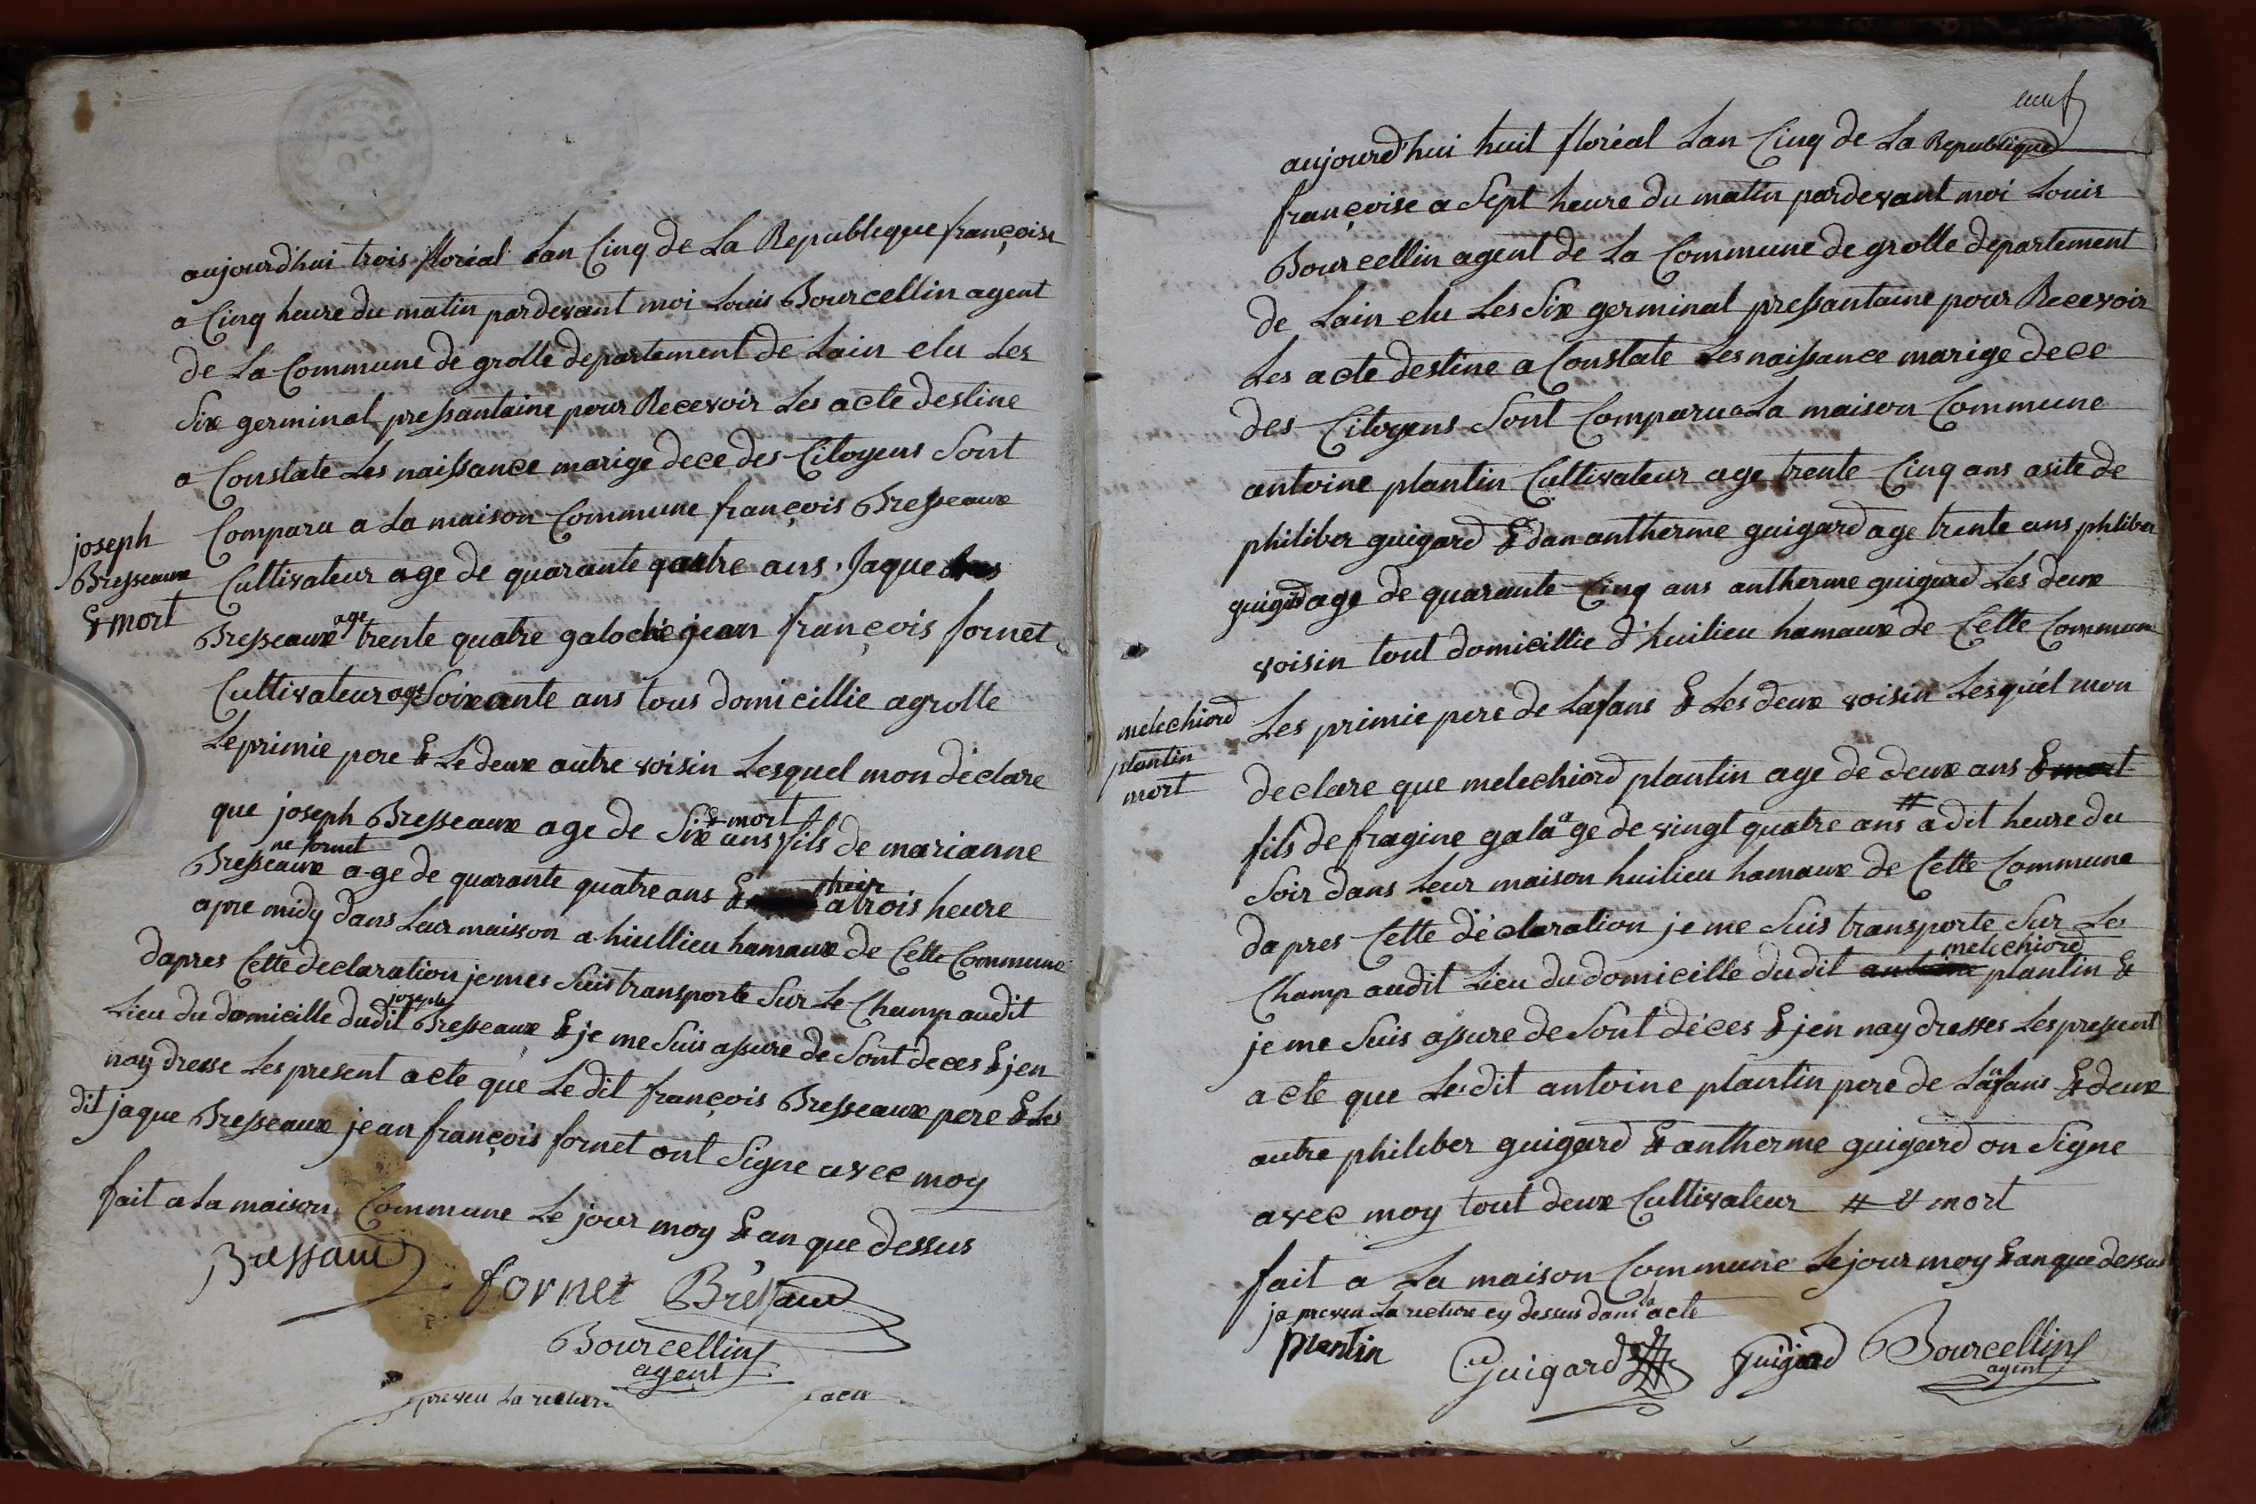 aujourd'hui trois floréal Lan Cinq de La Republique françoise
a Cinq heure du matin pardevant moi Louis Bourcellin agent
de La Commune de grolle departement de Lain elu Les
Six germinal pressantaine pour Recevoir Les acte destine
a Constate Les naissance marige dece des Citoyens Sont
Comparu a La maison Commune françois Bresseaux
joseph
Bresseaux
& mort
Cultivateur age de quarante quatre ans, Jaque
Bresseaux age trente quatre galoché jean françois fornet
Cultivateur age Soixante ans tous domicillie a grolle
Le primie pere & Le deux autre voisin Lesquel mon déclare
que joseph Bresseaux age de Six ans & mort fils de marianne
Bresseaux ne fornet age de quarante quatre ans & hier a trois heure
apre midy dans Leur maison a hiullieu hamaux de Cette Commune
dapres Cette declaration je mes Suis transporte Sur Le Champ audit
Lieu du domicille dudit joseph Bresseaux & je me Suis assure de Sont deces & jen
nay dresse Les present acte que Le dit françois Bresseaux pere & Les
dit jaque Bresseaux jean françois fornet ont Signe avec moy
fait a La maison Commune Le jour moy & an que dessus
Bressaux
fornet Bréssaux
Bourcellin
agent
preveu La
neuf
aujourd'hui huit floréal Lan Cinq de La Republique
françoise a Sept heure du matin pardevant moi Louis
Bourcellin agent de La Commune de grolle departement
de Lain elu Les Six germinal pressantaine pour Recevoir
Les acte destine a Constate Les naissance marige dece
des Citoyens Sont Comparu a La maison Commune
antoine plantin Cultivateur age trente Cinq ans asite de
philiber guigard & dan antherme guigard age trente ans phliber
guigard age de quarante Cinq ans antherme guigard Les deux
voisin tout domicillie d'huilieu hamaux de Cette Commune
melechiord
plantin
mort
Les primie pere de Lafans & Les deux voisin Lesquél mon
declare que melechiord plantin age de deux ans & mort
fils de fragine gala age de vingt quatre ans # a dit heure du
Soir dans Leur maison huilieu hamaux de Cette Commune
dapres Cette déclaration je me Suis transporte Sur Le
Champ audit Lieu du domicille dudit antoine melechiord plantin &
je me Suis assure de Sont déces & jen nay dresses Les present
acte que Ledit antoine plantin pere de Lanfans & deux
autre philiber guigard & antherme guigard on Signe
avec moy tout deux Cultivateur # & mort
fait a La maison Commune Le jour moy & an que dessus
ja preveu La reture cy dessus dans La acte
plantin Guigard guigard Bourcellin
agent